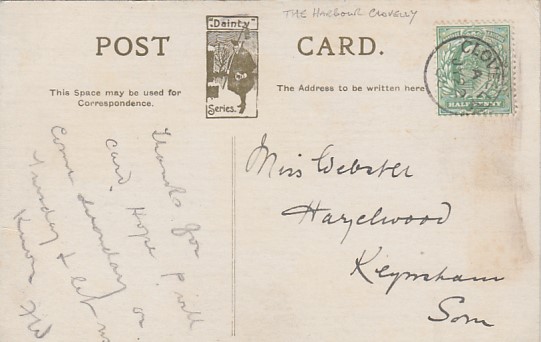 THE HARBOUR CLOVELLY
POST CARD.
"Dainty"
Series.
This Space may be used for
Correspondence.
The Address to be written here
CLOVELLY
HALFPENNY
Thanks for
card. Hope P. will
come Monday or
Tuesday & let me
know
Miss Webster
Hazelwood
Keynsham
Som